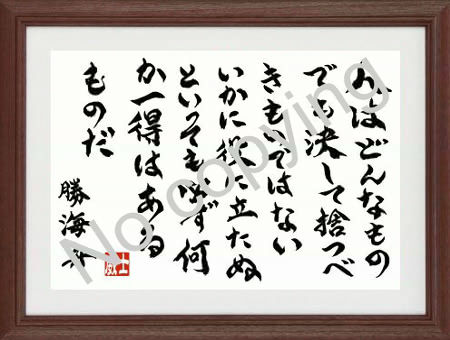 人はどんなもの
でも決して捨つべ
きものではない
いかに役に立たぬ
といっても必ず何
か一得はある
ものだ
勝海舟
No copying